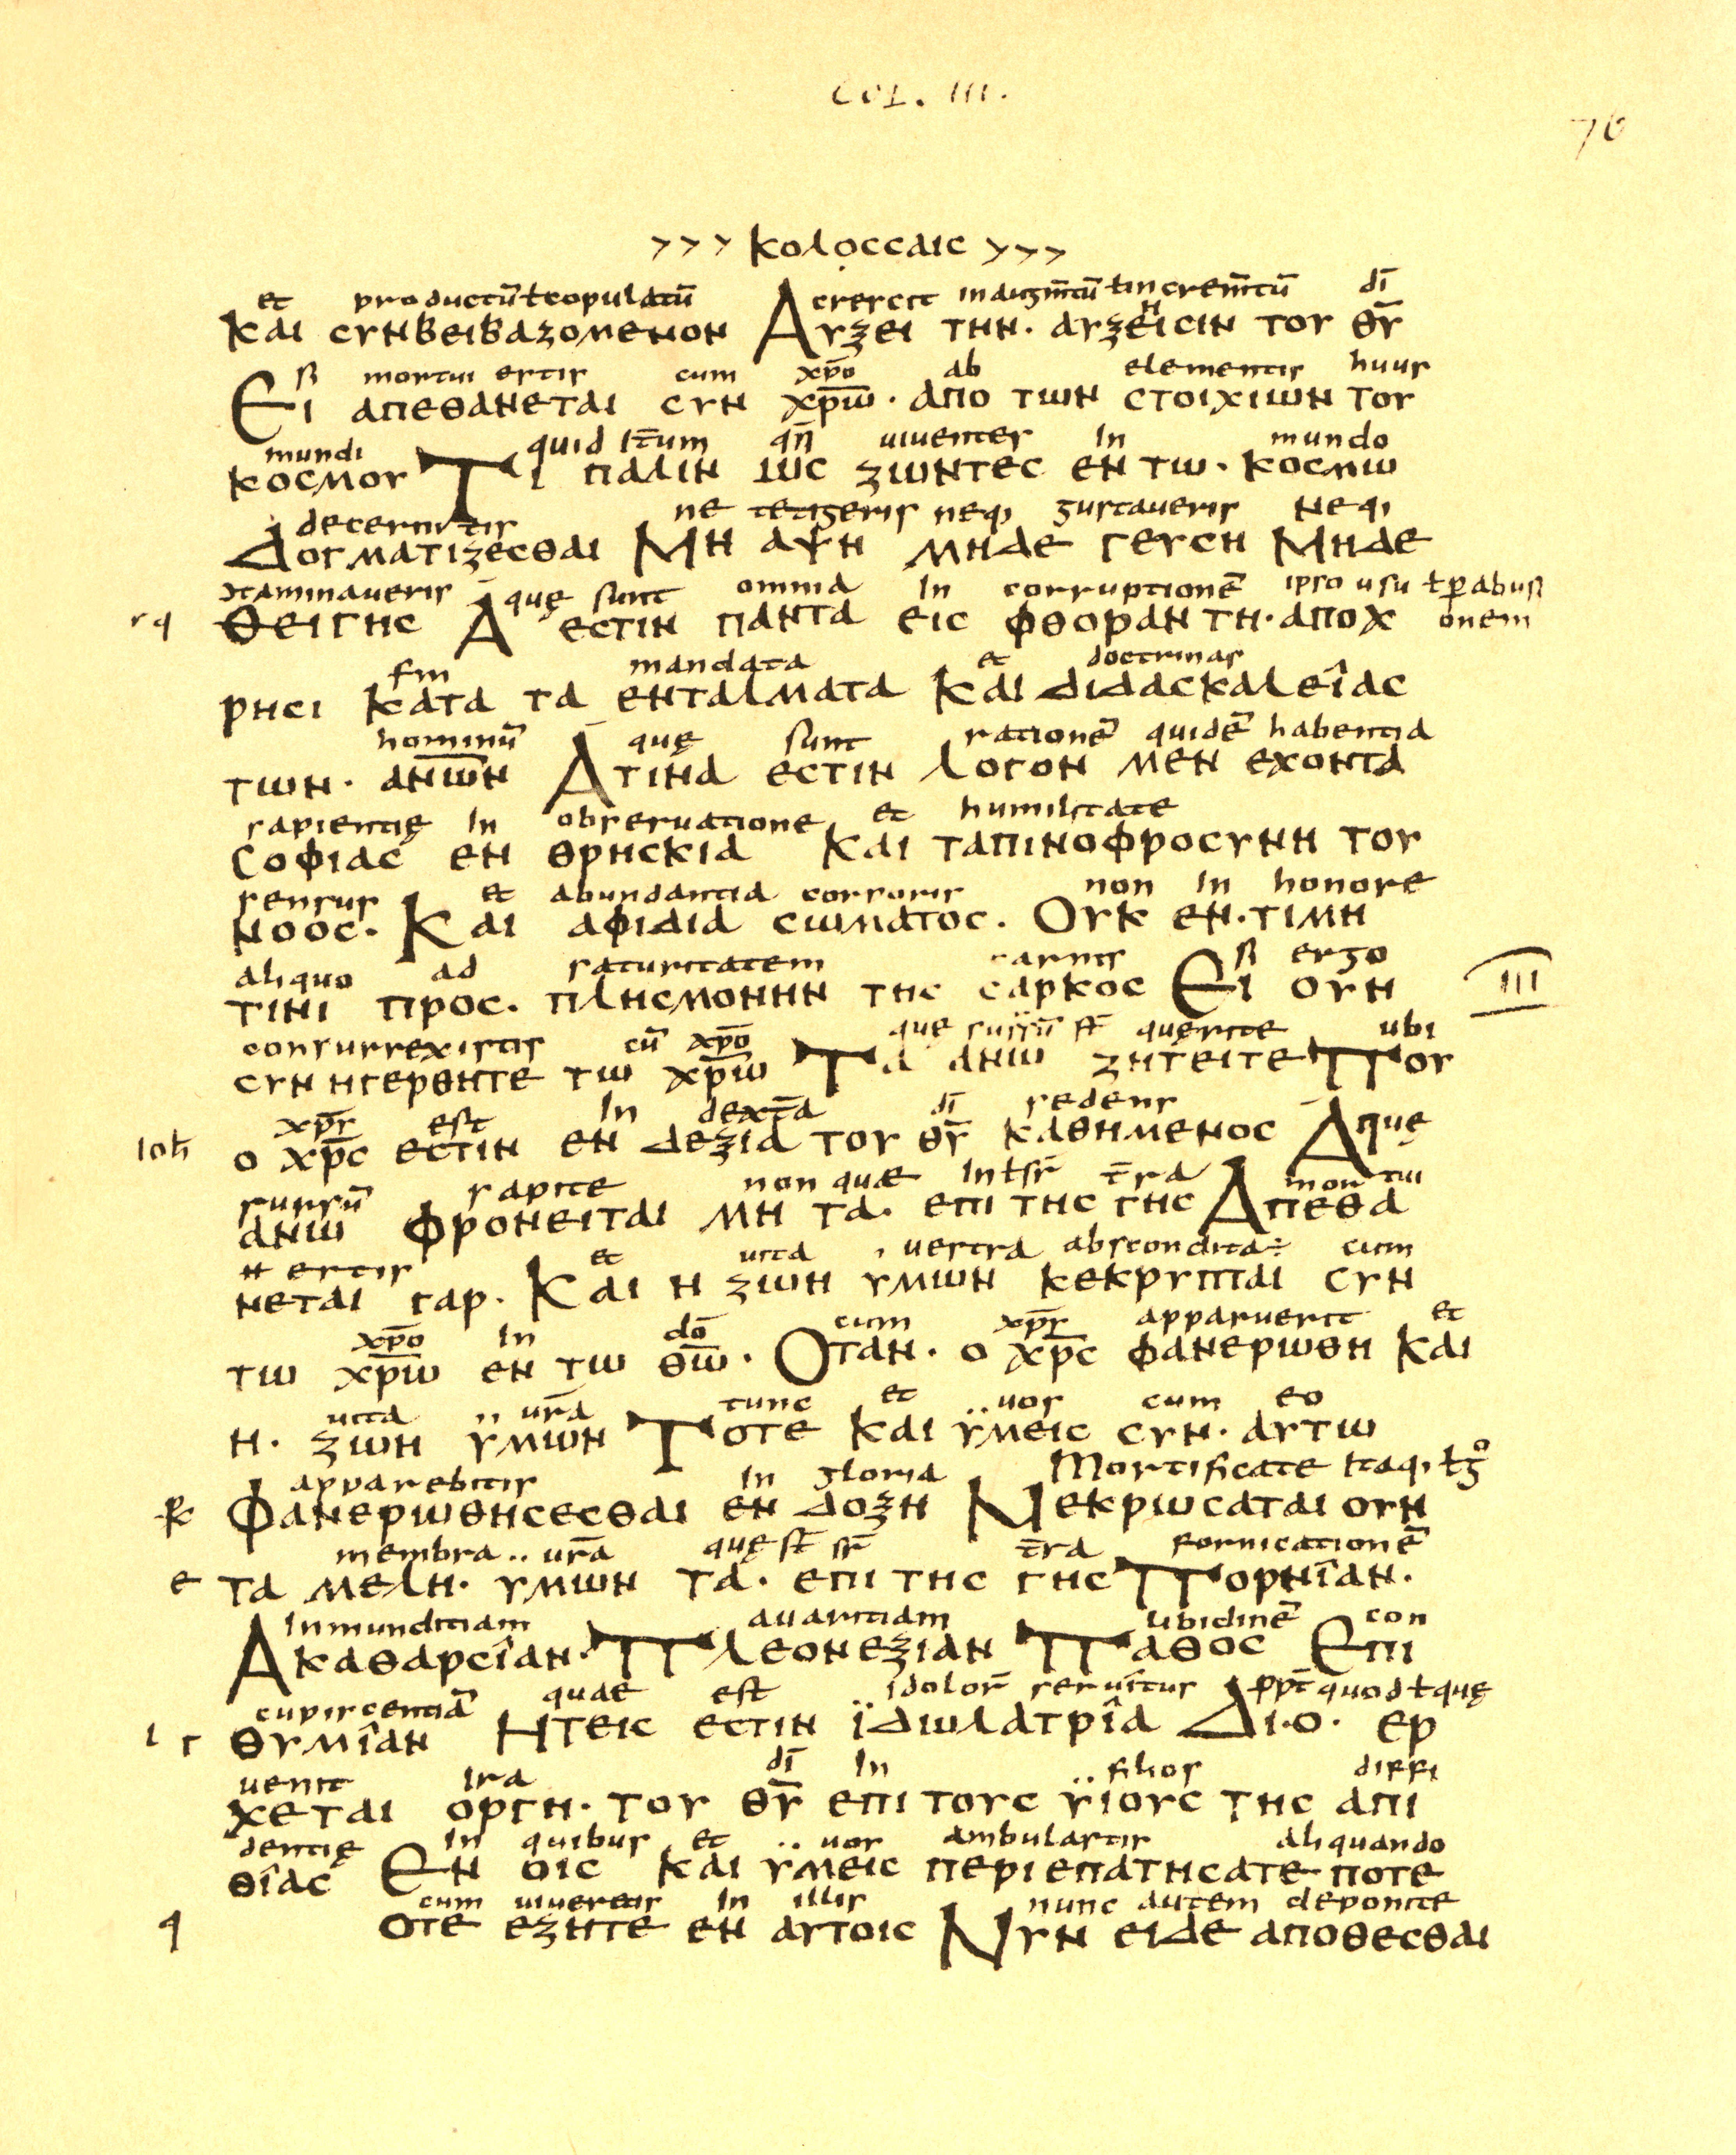 COL. III.
70
>>> κολοσσαις >>>
et productū ł copulatū crescit in augm̄tū ł increm̄tū dī
και συνβειβαζομενον Αυξει την· αυξεισιν του θῡ
si mortui estis cum xp̄o ab elementis huus
Ει απεθανεται συν χρ̄ω̄· απο των στοιχιων του
mundi quid it̄um qn̄ uiuentes in mundo
κοσμου Τι παλιν ως ζωντες εν τω· κοσμω
decernitis ne tetigeris neqi gustaueris neqi
Δογματιζεσθαι Μη αψη μηδε γευση Μηδε
ɔtaminaueris quę sunt omnia in corruptionē ipso usu ł p abusi
θειγης Α εστιν παντα εις φθοραν τη· αποχ onem
sm mandata et doctrinas
ρησι κατα τα ενταλματα και διδασκαλειας
hominū quę sunt rationē quidē habentia
των· ανω̄ν Ατινα εστιν λογον μεν εχοντα
sapientię in obseruatione et humilitate
Σοφιας εν θρησκια και ταπινοφροσυνη του
sensus et abundantia corporis non in honore
νοος· Και αφιδια σωματος· Ουκ εν· τιμη
aliquo ad saturitatem carnis si ergo
τινι προς· πλησμονην της σαρκος Ει ουν
III
consurrexistis cū xp̄o que sursū st̄ quęrite ubi
συν ηγερθητε τω χρ̄ω̄ Τα ανω ζητειτε Που
xp̄s est in dext̄a dī sedens quę
Ioh ο χρ̄ς εστιν εν δεξια του θῡ καθημενος Α
sursū sapite non quae in ł sr̄ t̄ra mortui
ανω φρονειται μη τα· επι της γης Απεθα
estis et uita uestra abscondita÷ cum
νεται γαρ· Και η ζωη υμων κεκρυπται συν
xp̄o in dō cum xp̄s apparuerit et
τω χρ̄ω̄ εν τω θω̄· Οταν· ο χρ̄ς φανερωθη και
uita ur̄a tunc et uos cum eo
η· ζωη υμων Τοτε και ϋμεις συν· αυτω
apparebitis in gloria Mortificate itaqi ł g̊
Φανερωθησεσθαι εν δοξη Νεκρωσαται ουν
membra ur̄a quę st̄ sr̄ t̄ra fornicationē
τα μελη· υμων τα· επι της γης Πορνιαν·
inmunditiam auaritiam libidinē con
Ακαθαρσιαν· Πλεονεξιαν Παθος Επι
cupiscentiā quae est idolor̄ seruitus ppt̄ quod ł quę
θυμιαν Ητεις εστιν ϊδωλατρια Δι·ο· ερ
uenit ira dī in filios diffi
χεται οργη· του θῡ επι τους ϋιους της απι
dentię in quibus et uos ambulastis aliquando
θιας Εν οις και υμεις περιεπατησατε ποτε
cum uiueretis in illis nunc autem deponite
οτε εζητε εν αυτοις Νυν ειδε αποθεσθαι